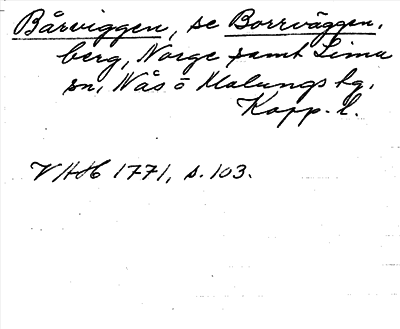 Bårviggen, se Borrväggen,
berg, Norge samt Lima
sn, Nås o Malungs hg,
Kopp. l.
VHH 1771, s. 103.